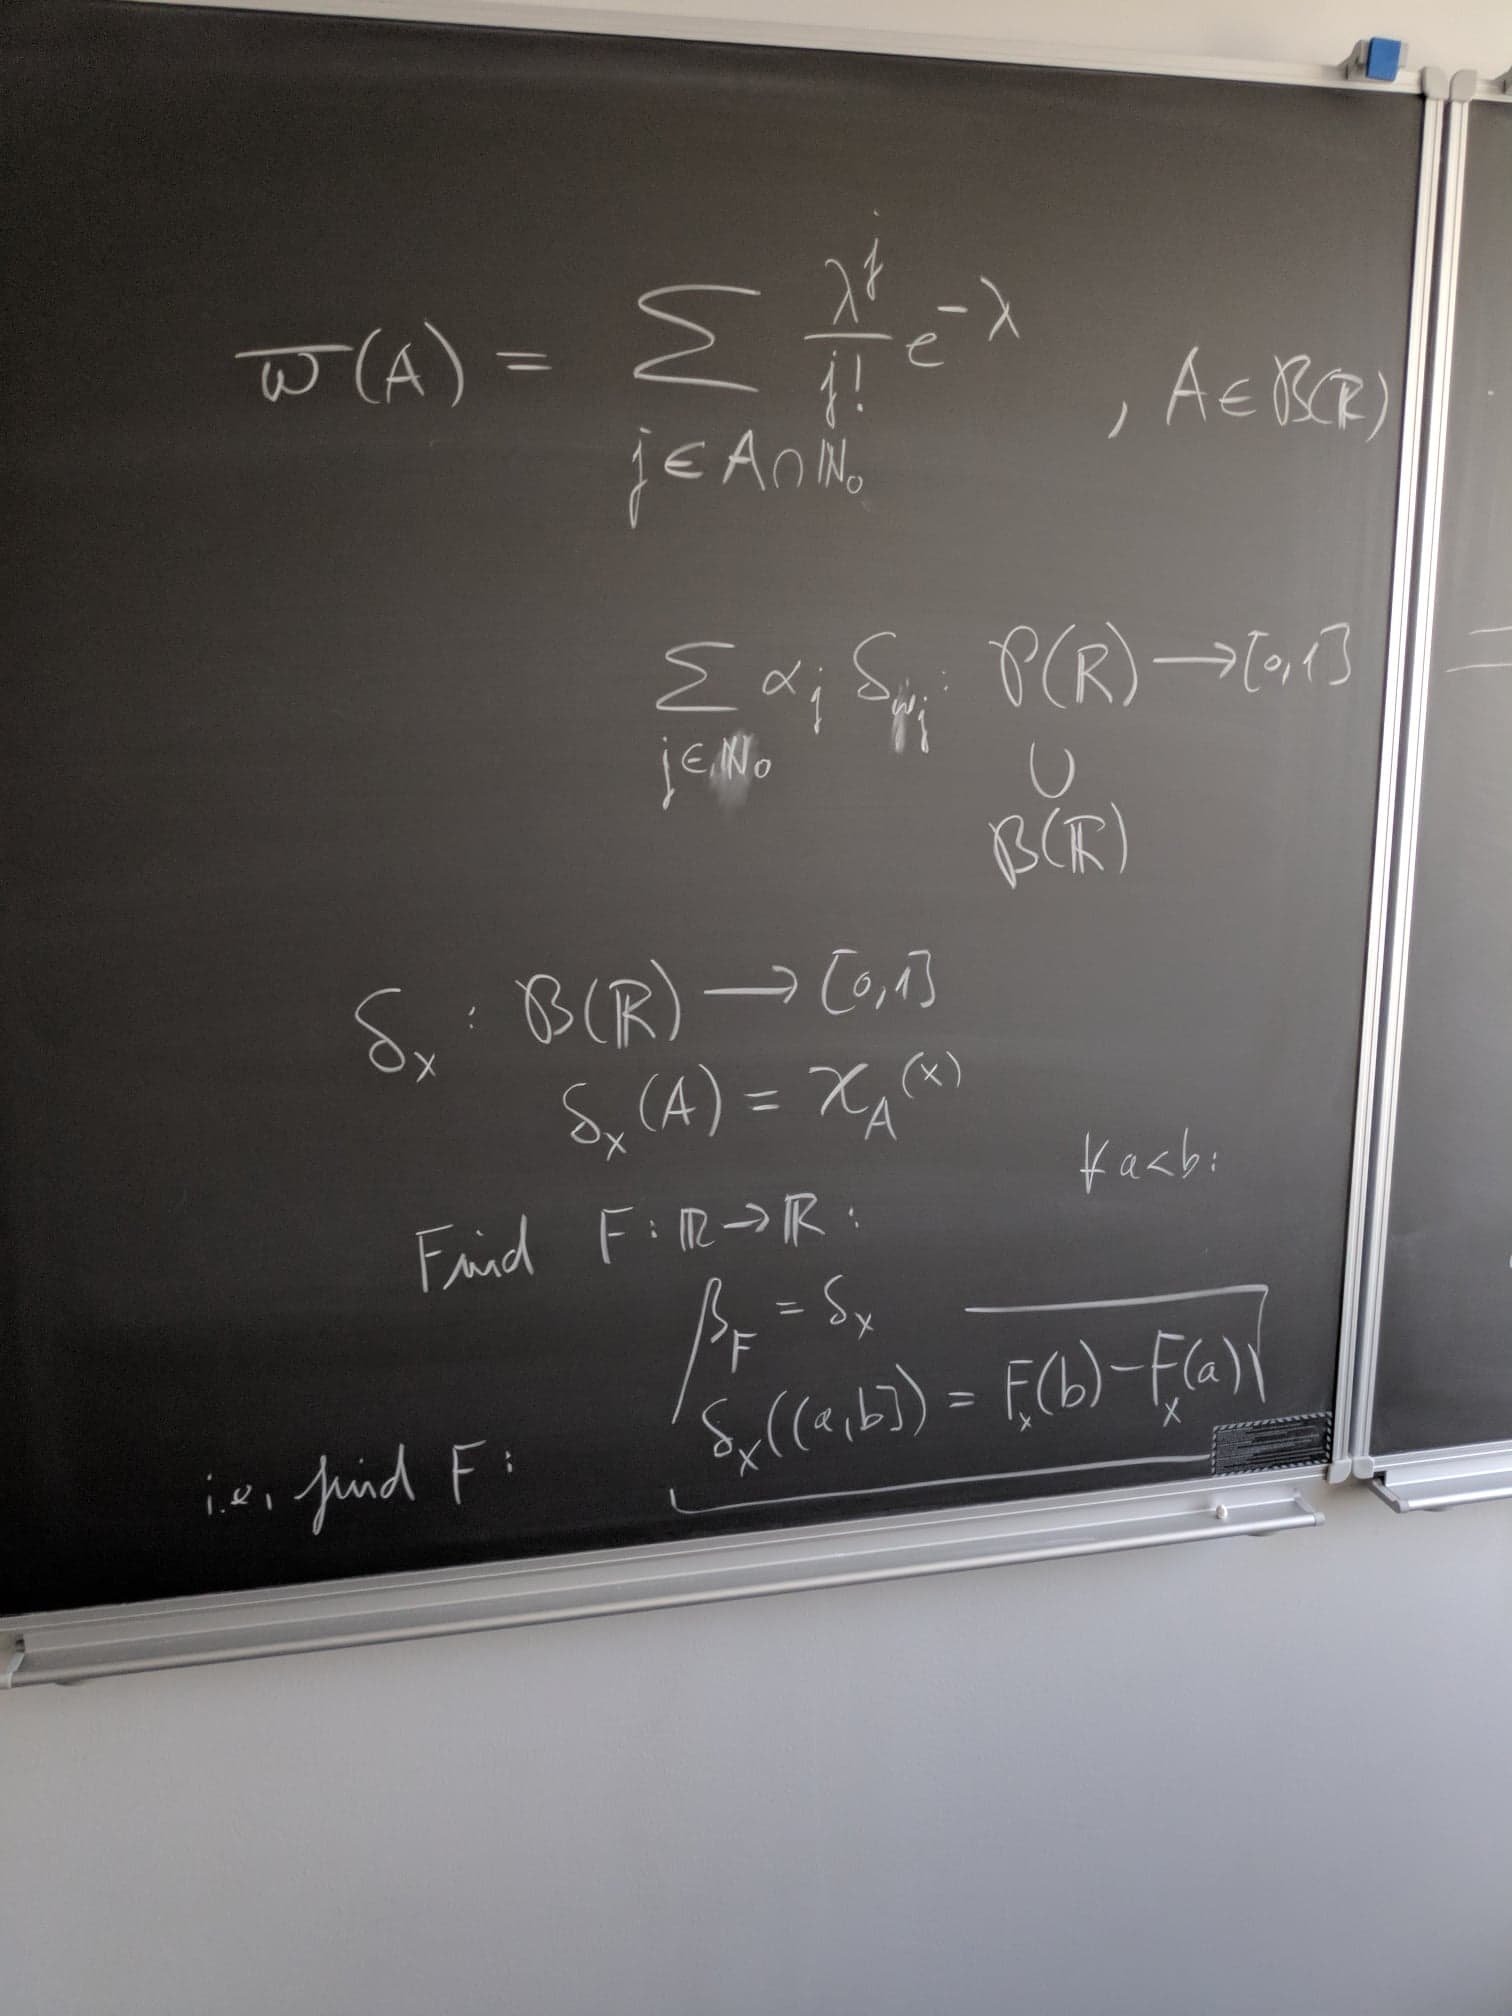 ϖ(A) = ∑_{j∈A∩ℕ₀} λ^j/j! e^{-λ} , A ∈ 𝓑(ℝ)
∑_{j∈ℕ₀} α_j δ_{ω_j} : 𝒫(ℝ) → [0,1]
∪
𝓑(ℝ)
δ_x : 𝓑(ℝ) → [0,1]
δ_x(A) = χ_A(x)
∀ a<b:
Find F: ℝ→ℝ :
β_F = δ_x
i.e., find F: δ_x((a,b]) = F_x(b) - F_x(a)